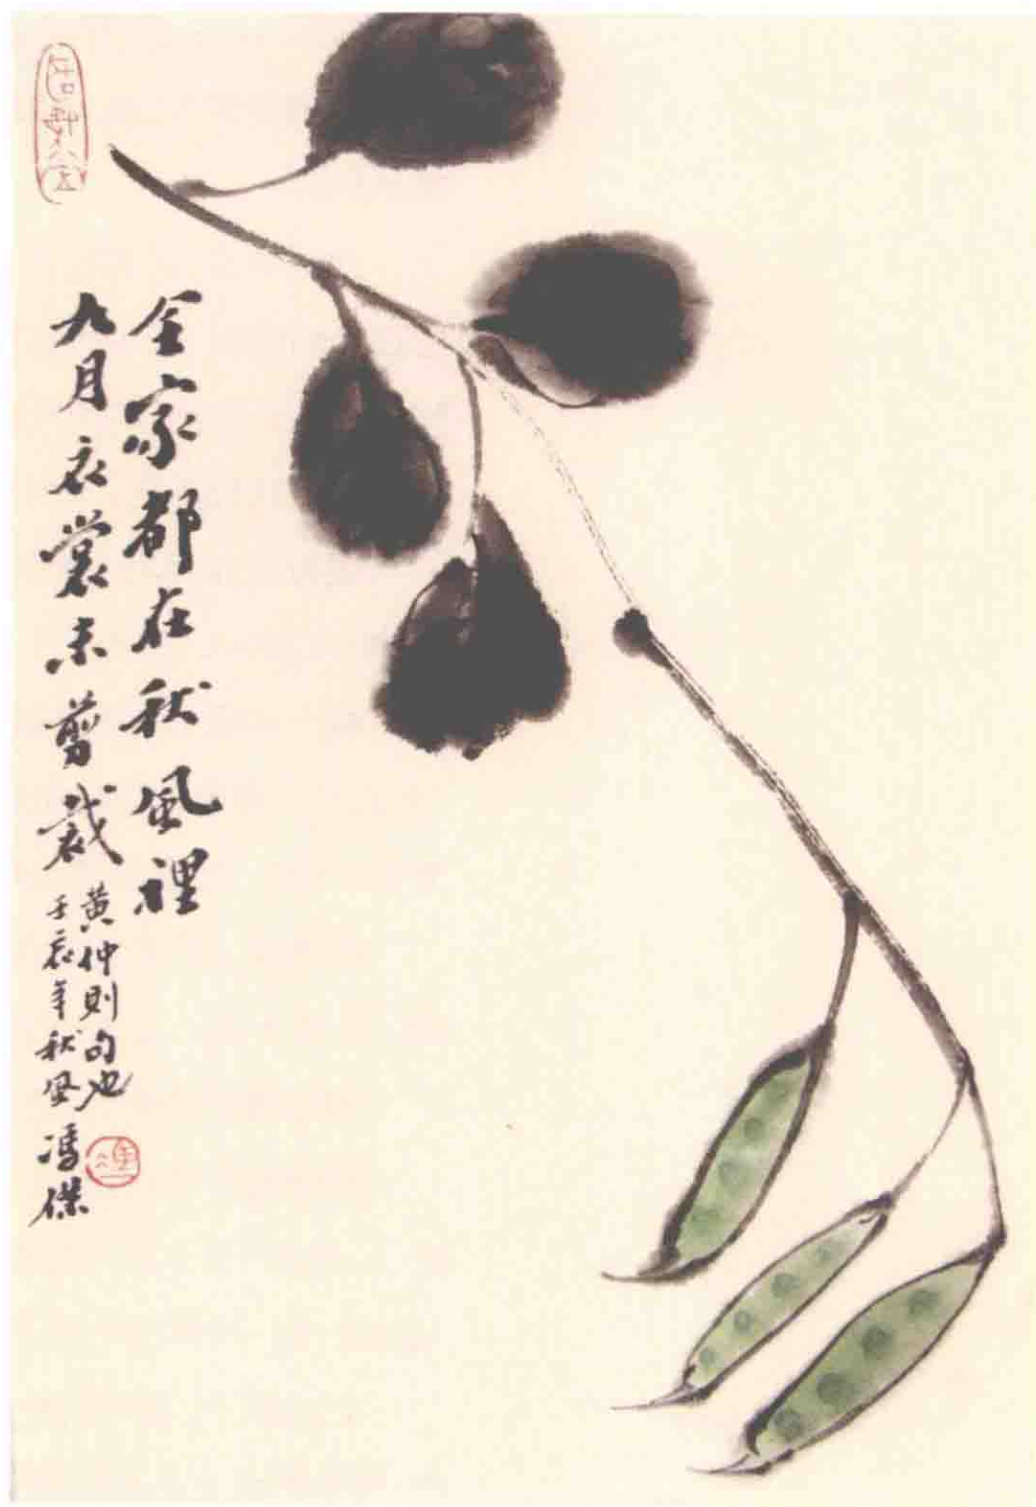 全家都在秋風裡
九月衣裳未剪裁
黄仲則句也
壬辰年秋風 馮傑